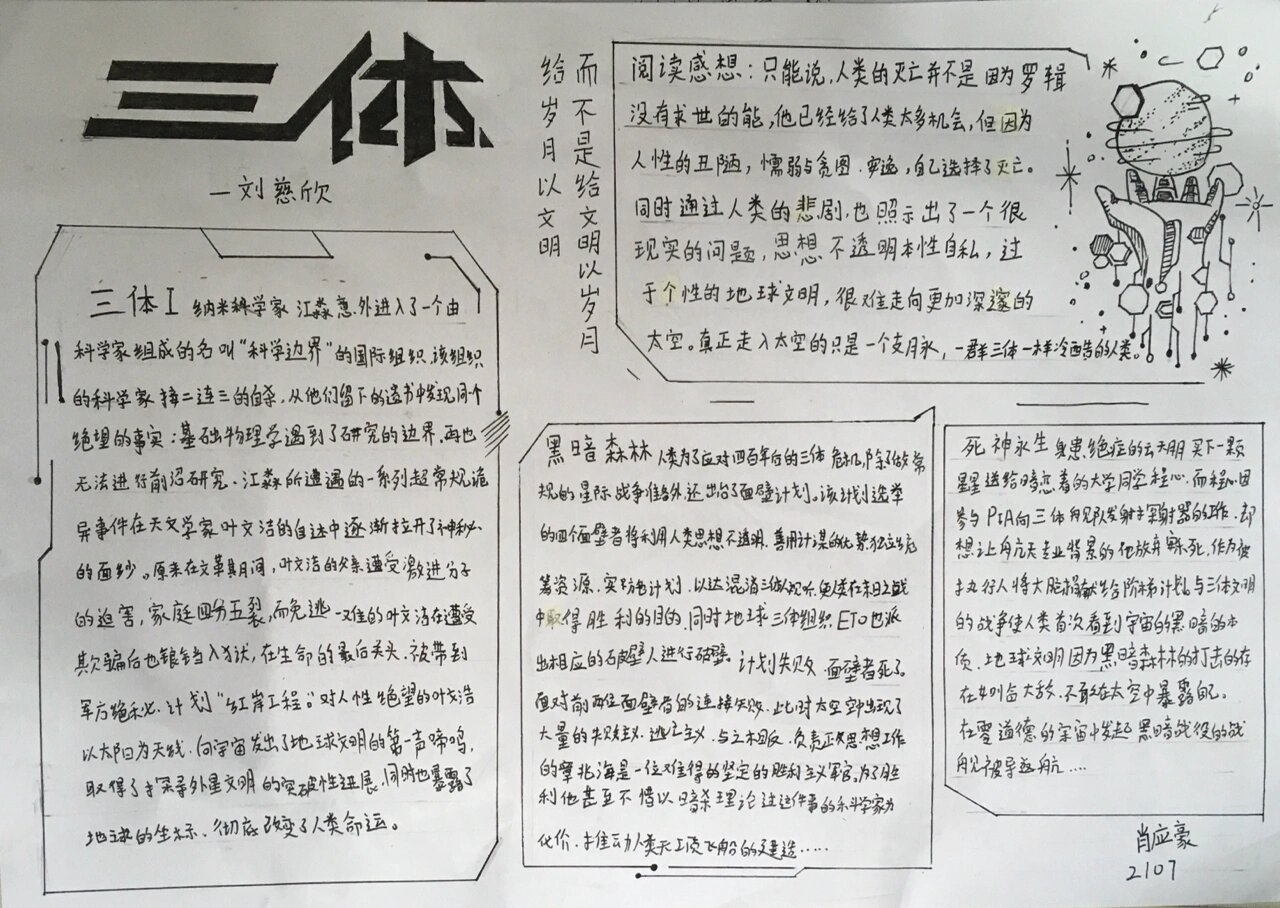 三体
—刘慈欣
给岁月以文明
而不是给文明以岁月
阅读感想：只能说，人类的灭亡并不是因为罗辑
没有求世的能，他已经给了人类太多机会，但因为
人性的丑陋，懦弱与贪图安逸，自己选择了灭亡。
同时通过人类的悲剧，也照示出了一个很
现实的问题，思想不透明本性自私，过
于个性的地球文明，很难走向更加深邃的
太空。真正走入太空的只是一个支月永，一群三体一样冷酷的人类。
三体I 纳米科学家江淼意外进入了一个由
科学家组成的名叫“科学边界”的国际组织，该组织
的科学家接二连三的自杀，从他们留下的遗书中发现同个
绝望的事实：基础物理学遇到了研究的边界，再也
无法进行前沼研究、江淼所遭遇的一系列超常规诡
异事件在天文学家叶文洁的自述中逐渐拉开了神秘
的面纱。原来在文革其月间，叶文洁的父亲遭受激进分子
的迫害，家庭四分五裂，而免逃一难的叶文洁在遭受
欺骗后也锒铛入狱，在生命的最后关头，被带到
军方绝秘计划“红岸工程”。对人性绝望的叶文洁
以太阳为天线，向宇宙发出了地球文明的第一声啼鸣，
取得了探寻外星文明的突破性进展，同时也暴露了
地球的坐标、彻底改变了人类命运。
黑暗森林 人类为了应对四百年后的三体危机，除了做常
规的星际战争准备外，还出台了面壁计划。该计划选举
的四个面壁者将利用人类思想不透明、善用计谋的优势独立统
筹资源，实施计划，以达混淆三体人视听，使人类在末日之战
中取得胜利的目的，同时地球三体组织ETO也派
出相应的破壁人进行破壁。计划失败，面壁者死了。
面对前两位面壁者的连接失败，此时太空中出现了
大量的失败主义、逃亡主义、与之相反，负责正攵思想工作
的章北海是一位难得的坚定的胜利主义军官，为了胜
利他甚至不惜以暗杀理论过这件事的科学家为
代价，推动人类天顶飞船的建造……
死神永生 身患绝症的云天明买下一颗
星星送给暗恋着的大学同学程心，而程心因
参与PIA向三体舰队发射探射器的工作，却
想让航天专业背景的他放弃安乐死，作为被
执行人将大脑捐献给阶梯计划。与三体文明
的战争使人类首次看到宇宙的黑暗的本
质，地球文明因为黑暗森林的打击的存
在如临大敌，不敢在太空中暴露自己。
在零道德的宇宙中发起黑暗战役的战
舟见被导返航……
肖应豪
2107